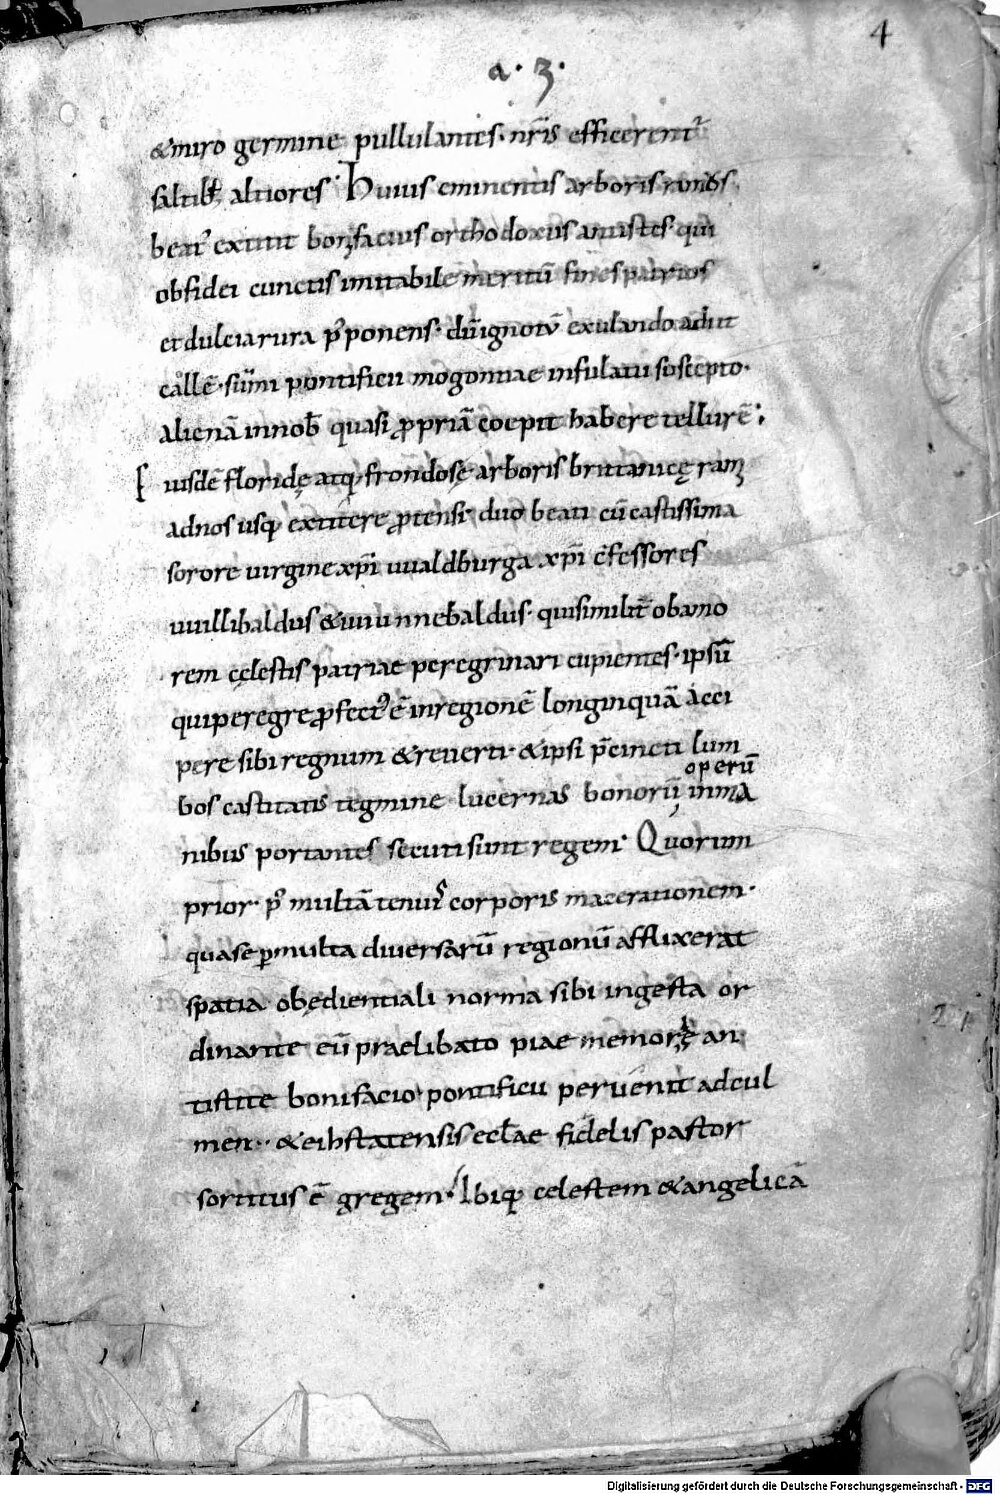 4
a. 3.
& miro germine pullulantes. nr̄is efficerent᷑
saltib; altiores. Huius eminentis arboris
beat᷒ extitit bonifacius orthodoxus antistes. qui
ob fidei cunctis imitabile meritū fines patrios
et dulcia rura p̄ponens. ignotū exulando adiit
callē. sūmi pontificii mogontiae infulatu suscepto.
alienā in nob̄ quasi ꝓpriā coepit habere tellurē.
Eiusdē floridę atq; frondosę arboris britanicę rami
ad nos usq; extitere ꝓtensi duo beati cū castissima
sorore uirgine xp̄i uualdburga xp̄i c̄fessores
uuillibaldus & uuunnebaldus. qui similit̄ ob amo
rem cęlestis patriae peregrinari cupientes. ipsū
qui peregre ꝓfect᷒ ē in regionē longinquā acci
pere sibi regnum & reuerti. & ipsi p̄cincti lum
bos castitatis tegmine lucernas bonorū operū in ma
nibus portantes secuti sunt regem. Quorum
prior. p᷒ multā tenui᷒ corporis macerationem.
qua se ꝑ multa diuersarū regionū afflixerat
spatia obędientiali norma sibi ingesta or
dinante eū praelibato piae memorię an
tistite bonifacio. pontificii peruenit ad cul
men. & eihstatensis eccl̄ae fidelis pastor
sortitus ē gregem. Ibiq; celestem & angelicā
Digitalisierung gefördert durch die Deutsche Forschungsgemeinschaft - DFG